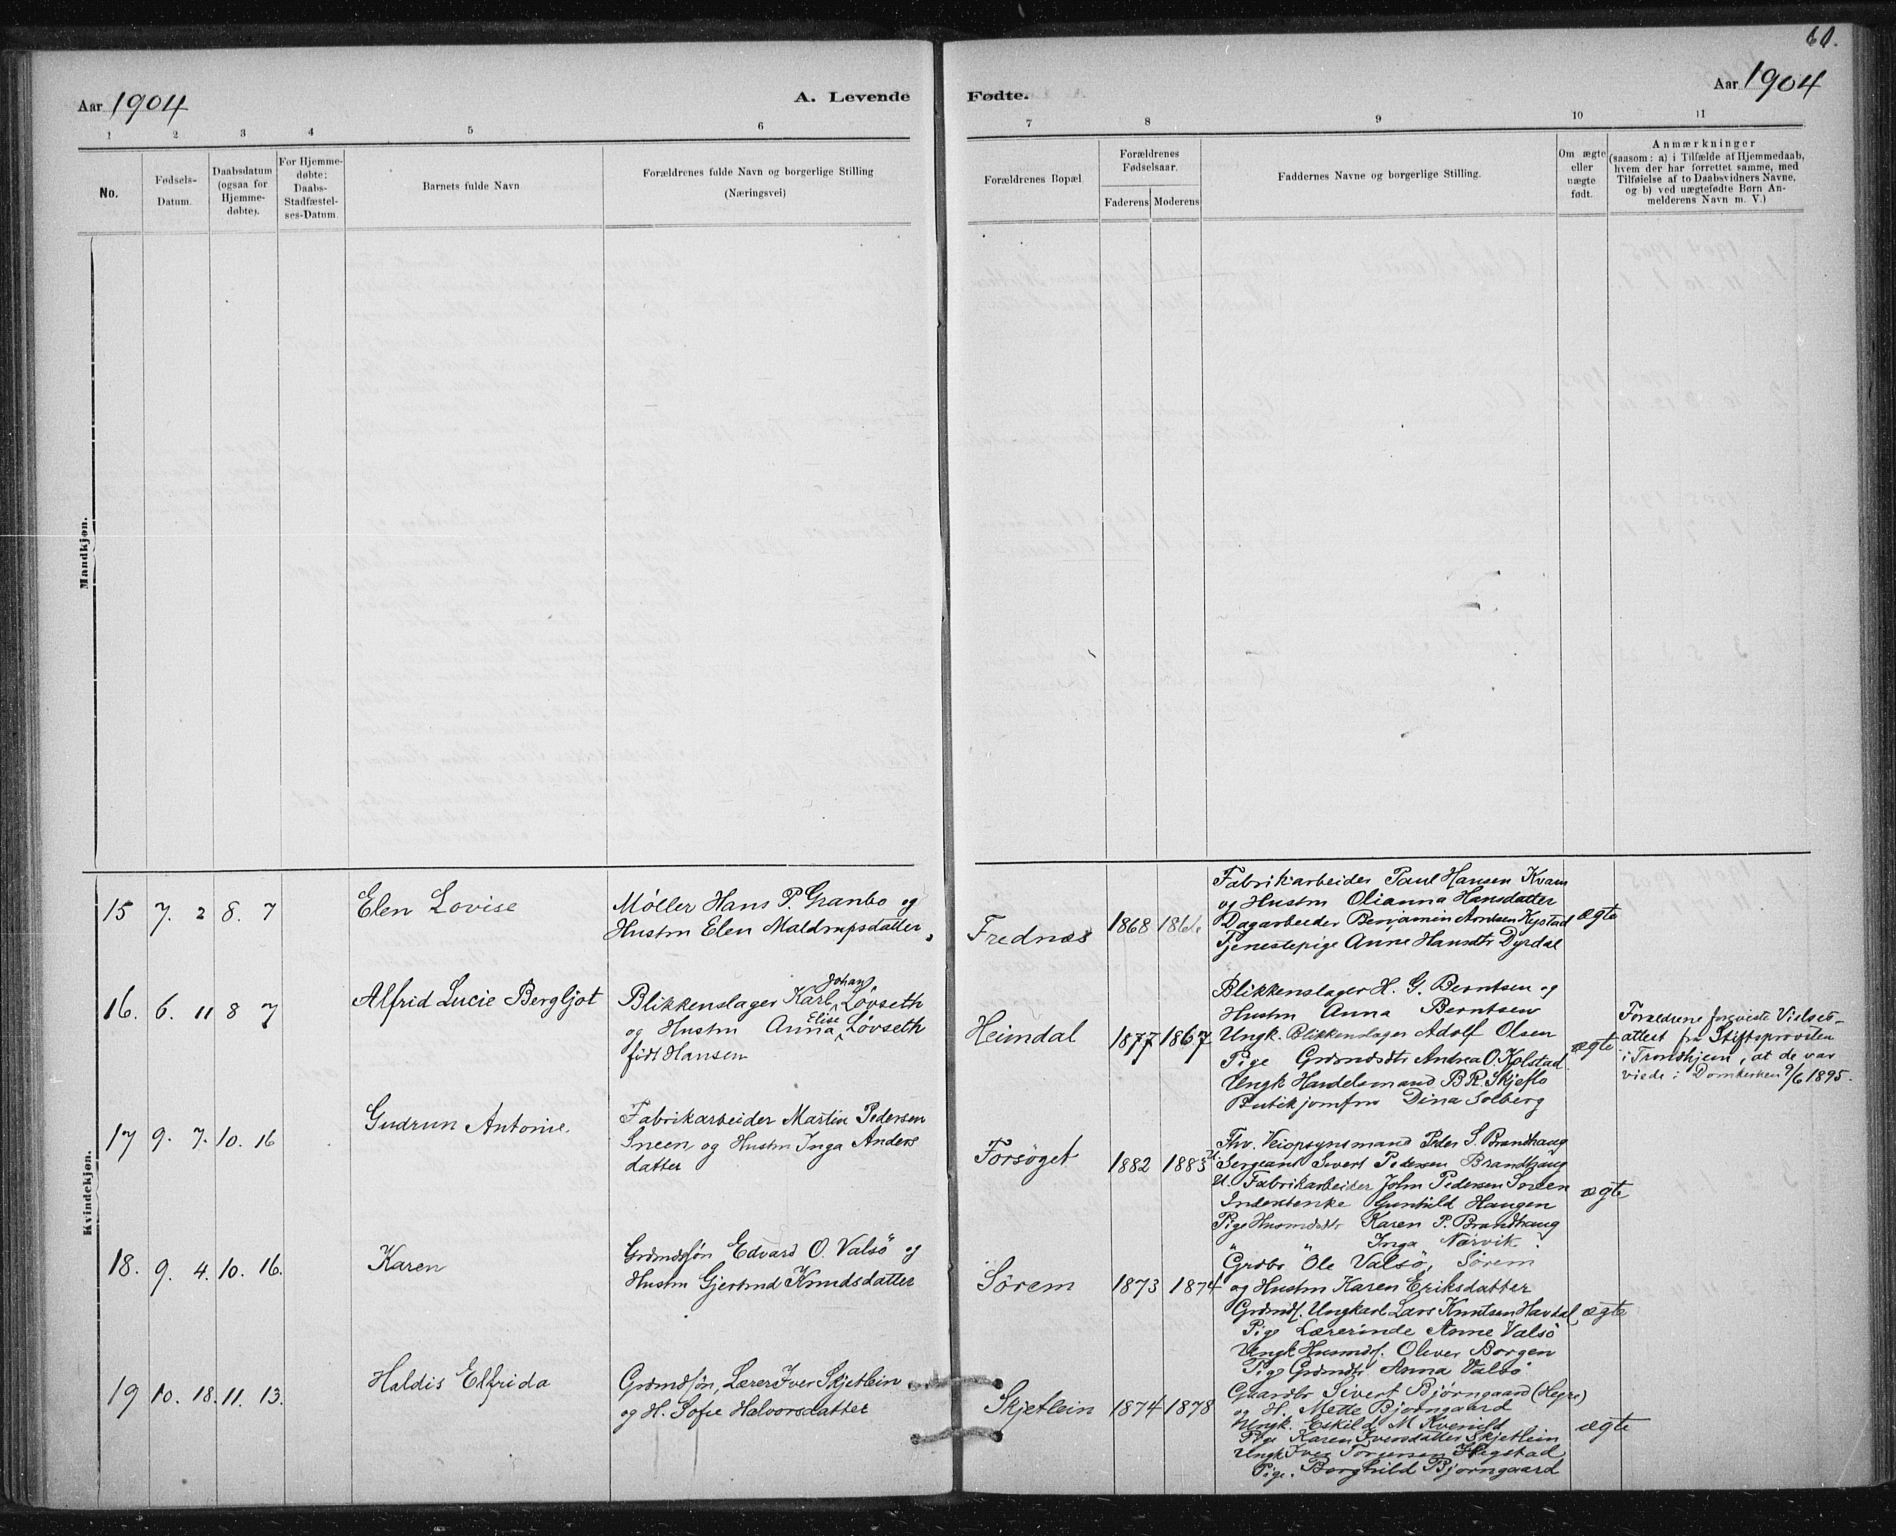 60.
Aar 1904
A. Levende
Fødte.
Aar 1904
1 2 3 4 5 6
7 8 9 10 11
No.
Fødsels-
Datum.
Daabsdatum
(ogsaa for
Hjemme-
døbte).
For Hjemme-
døbte:
Daabs-
Stadfæstel-
ses-Datum.
Barnets fulde Navn
Forældrenes fulde Navn og borgerlige Stilling
(Næringsvei)
Forældrenes Bopæl.
Forældrenes
Fødselsaar.
Faderens Moderens
Faddernes Navne og borgerlige Stilling.
Om ægte
eller
uægte
født.
Anmærkninger
(saasom: a) i Tilfælde af Hjemmedaab,
hvem der har forrettet samme, med
Tilføielse af to Daabsvidners Navne,
og b) ved uægtefødte Børn An-
melderens Navn m. V.)
Mandkjøn.
Kvindekjøn.
15 7. 2 8. 7
Elen Lovise
Møller Hans P. Granbo og
Hustru Elen Maldrupsdatter,
Frednæs
1868
Fabrikarbeider Paul Hansen Kvam
og Hustru Olianna Hansdatter
Dagarbeider Benjamin Arntsen Kystad
Tjenestepige Anne Hansdtr Dyrdal
ægte
16. 6. 11 8 7
Alfrid Lucie Bergljot
Blikkenslager Karl Johan Løvseth
og Hustru Anna Elise Løvseth
født Hansen
Heimdal
1877 1867
Blikkenslager H. G. Berntsen og
Hustru Anna Berntsen
Ungk. Blikkenslager Adolf Olsen
Pige Grdmdsdtr Andrea O. Kolstad
Ungk Handelsmand B R. Skjeflo
Butikjomfru Dina Solberg
ægte
Forældrene foreviste Vielses-
attest fra Stiftsprovsten
i Trondhjem, at de var
viede i Domkirken 9/6 1895.
17 9. 7. 10. 16
Gudrun Antonie.
Fabrikarbeider Martin Pedersen
Sneen og Hustru Inga Anders
datter
Forsøget
1882 1883
Fhv. Veiopsynsmand Peder S. Brandhaug
U. Sergeant Sivert Pedersen Brandhaug
U. Fabrikarbeider John Pedersen Sneen
Inderstenke Gunhild Haugen
Pige Husmdsdtr Karen P. Brandhaug
" " Inga Narvik.
ægte
18. 9. 4. 10. 16.
Karen
Grdmdsøn Edvard O. Valsö og
Hustru Gjertrud Knudsdatter
Sörem
1873 1874
Grdbr Ole Valsö, Sörem
og Hustru Karen Eriksdatter
Grdmds. Ungkarl Lars Knutsen Havdal
Pige Lærerinde Anne Valsö
Ungk Husmds. Oliver Borgen
Pige Grdmdtr Anna Valsö
ægte
19 10. 18. 11. 13.
Haldis Elfrida
Grdmdsøn, Lærer Iver Skjetlein
og H. Sofie Halvorsdatter
Skjetlein
1874 1878
Gaardbr Sivert Bjørngaard (Hegre)
og H. Mette Bjørngaard
Ungk. Eskild M Kvenild
Pige Karen Iversdatter Skjetlein
Ungk Iver Hegstad
Pige. Borghild Bjørngaard
ægte